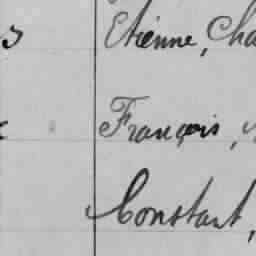 Etienne, Cha
François,
Constant,